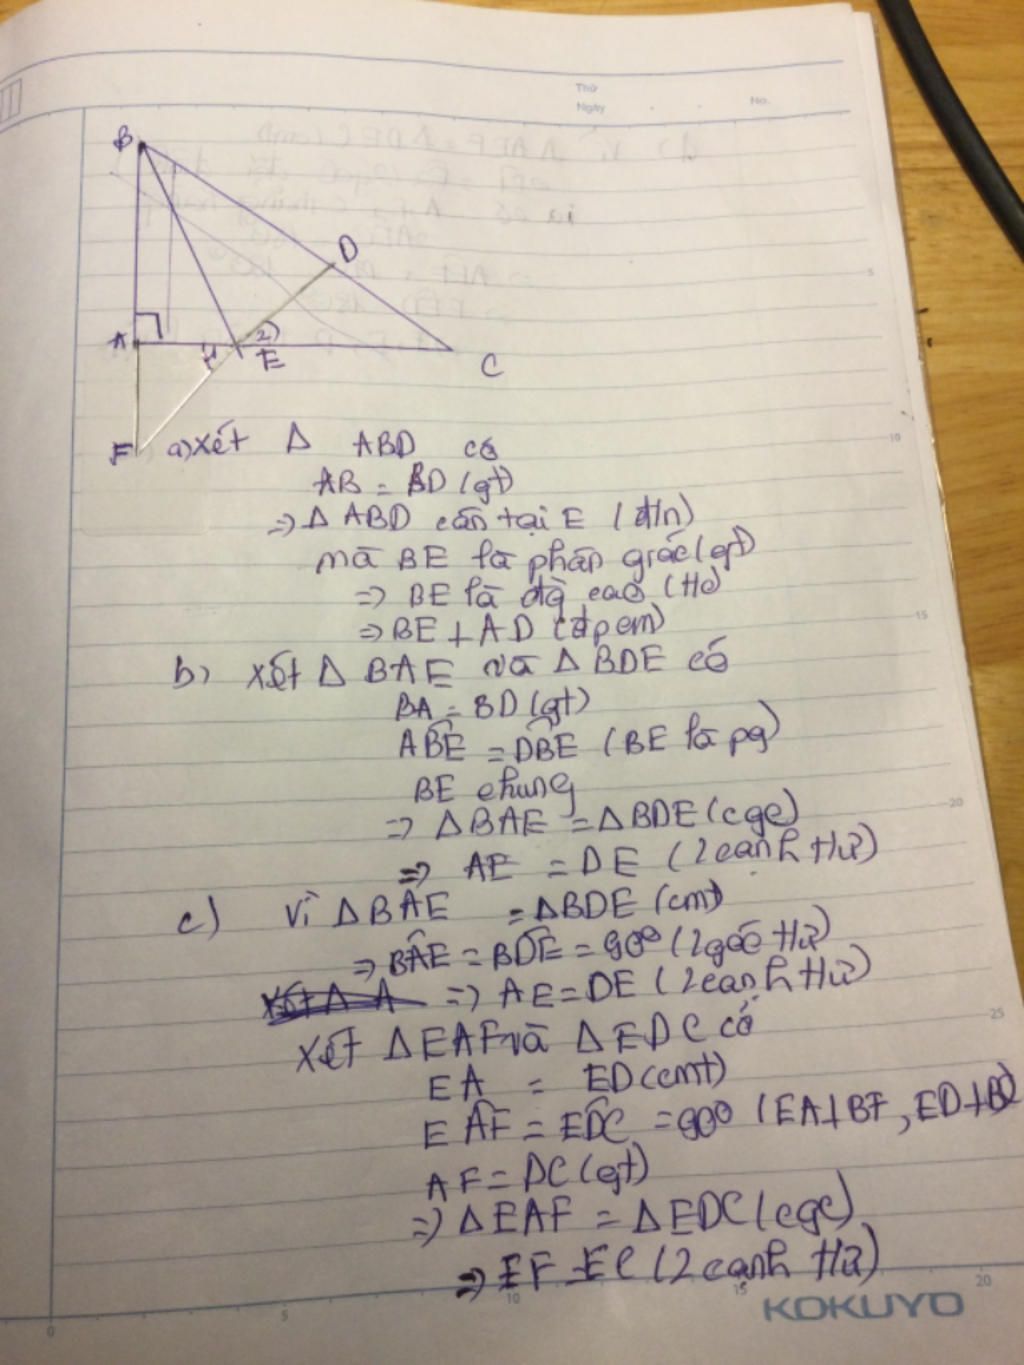 Thứ
Ngày . . No.
B
D
A
1
2
E
C
F
a) Xét Δ ABD có
AB = BD (gt)
=> Δ ABD cân tại E (đ/n)
mà BE là phân giác (gt)
=> BE là đg cao (t/c)
=> BE ⊥ AD (đpcm)
b) Xét Δ BAE và Δ BDE có
BA = BD (gt)
ABE = DBE (BE là pg)
BE chung
=> Δ BAE = Δ BDE (cgc)
=> AE = DE (2 cạnh tư)
c) Vì Δ BAE = Δ BDE (cmt)
=> BAE = BDE = 90° (2 góc tư)
=> AE = DE (2 cạnh tư)
Xét Δ EAF và Δ EDC có
EA = ED (cmt)
EAF = EDC = 90° (EA ⊥ BF, ED ⊥ BC)
AF = DC (gt)
=> Δ EAF = Δ EDC (cgc)
=> EF = EC (2 cạnh tư)
5
10
15
20
25
0
5
10
15
20
KOKUYO